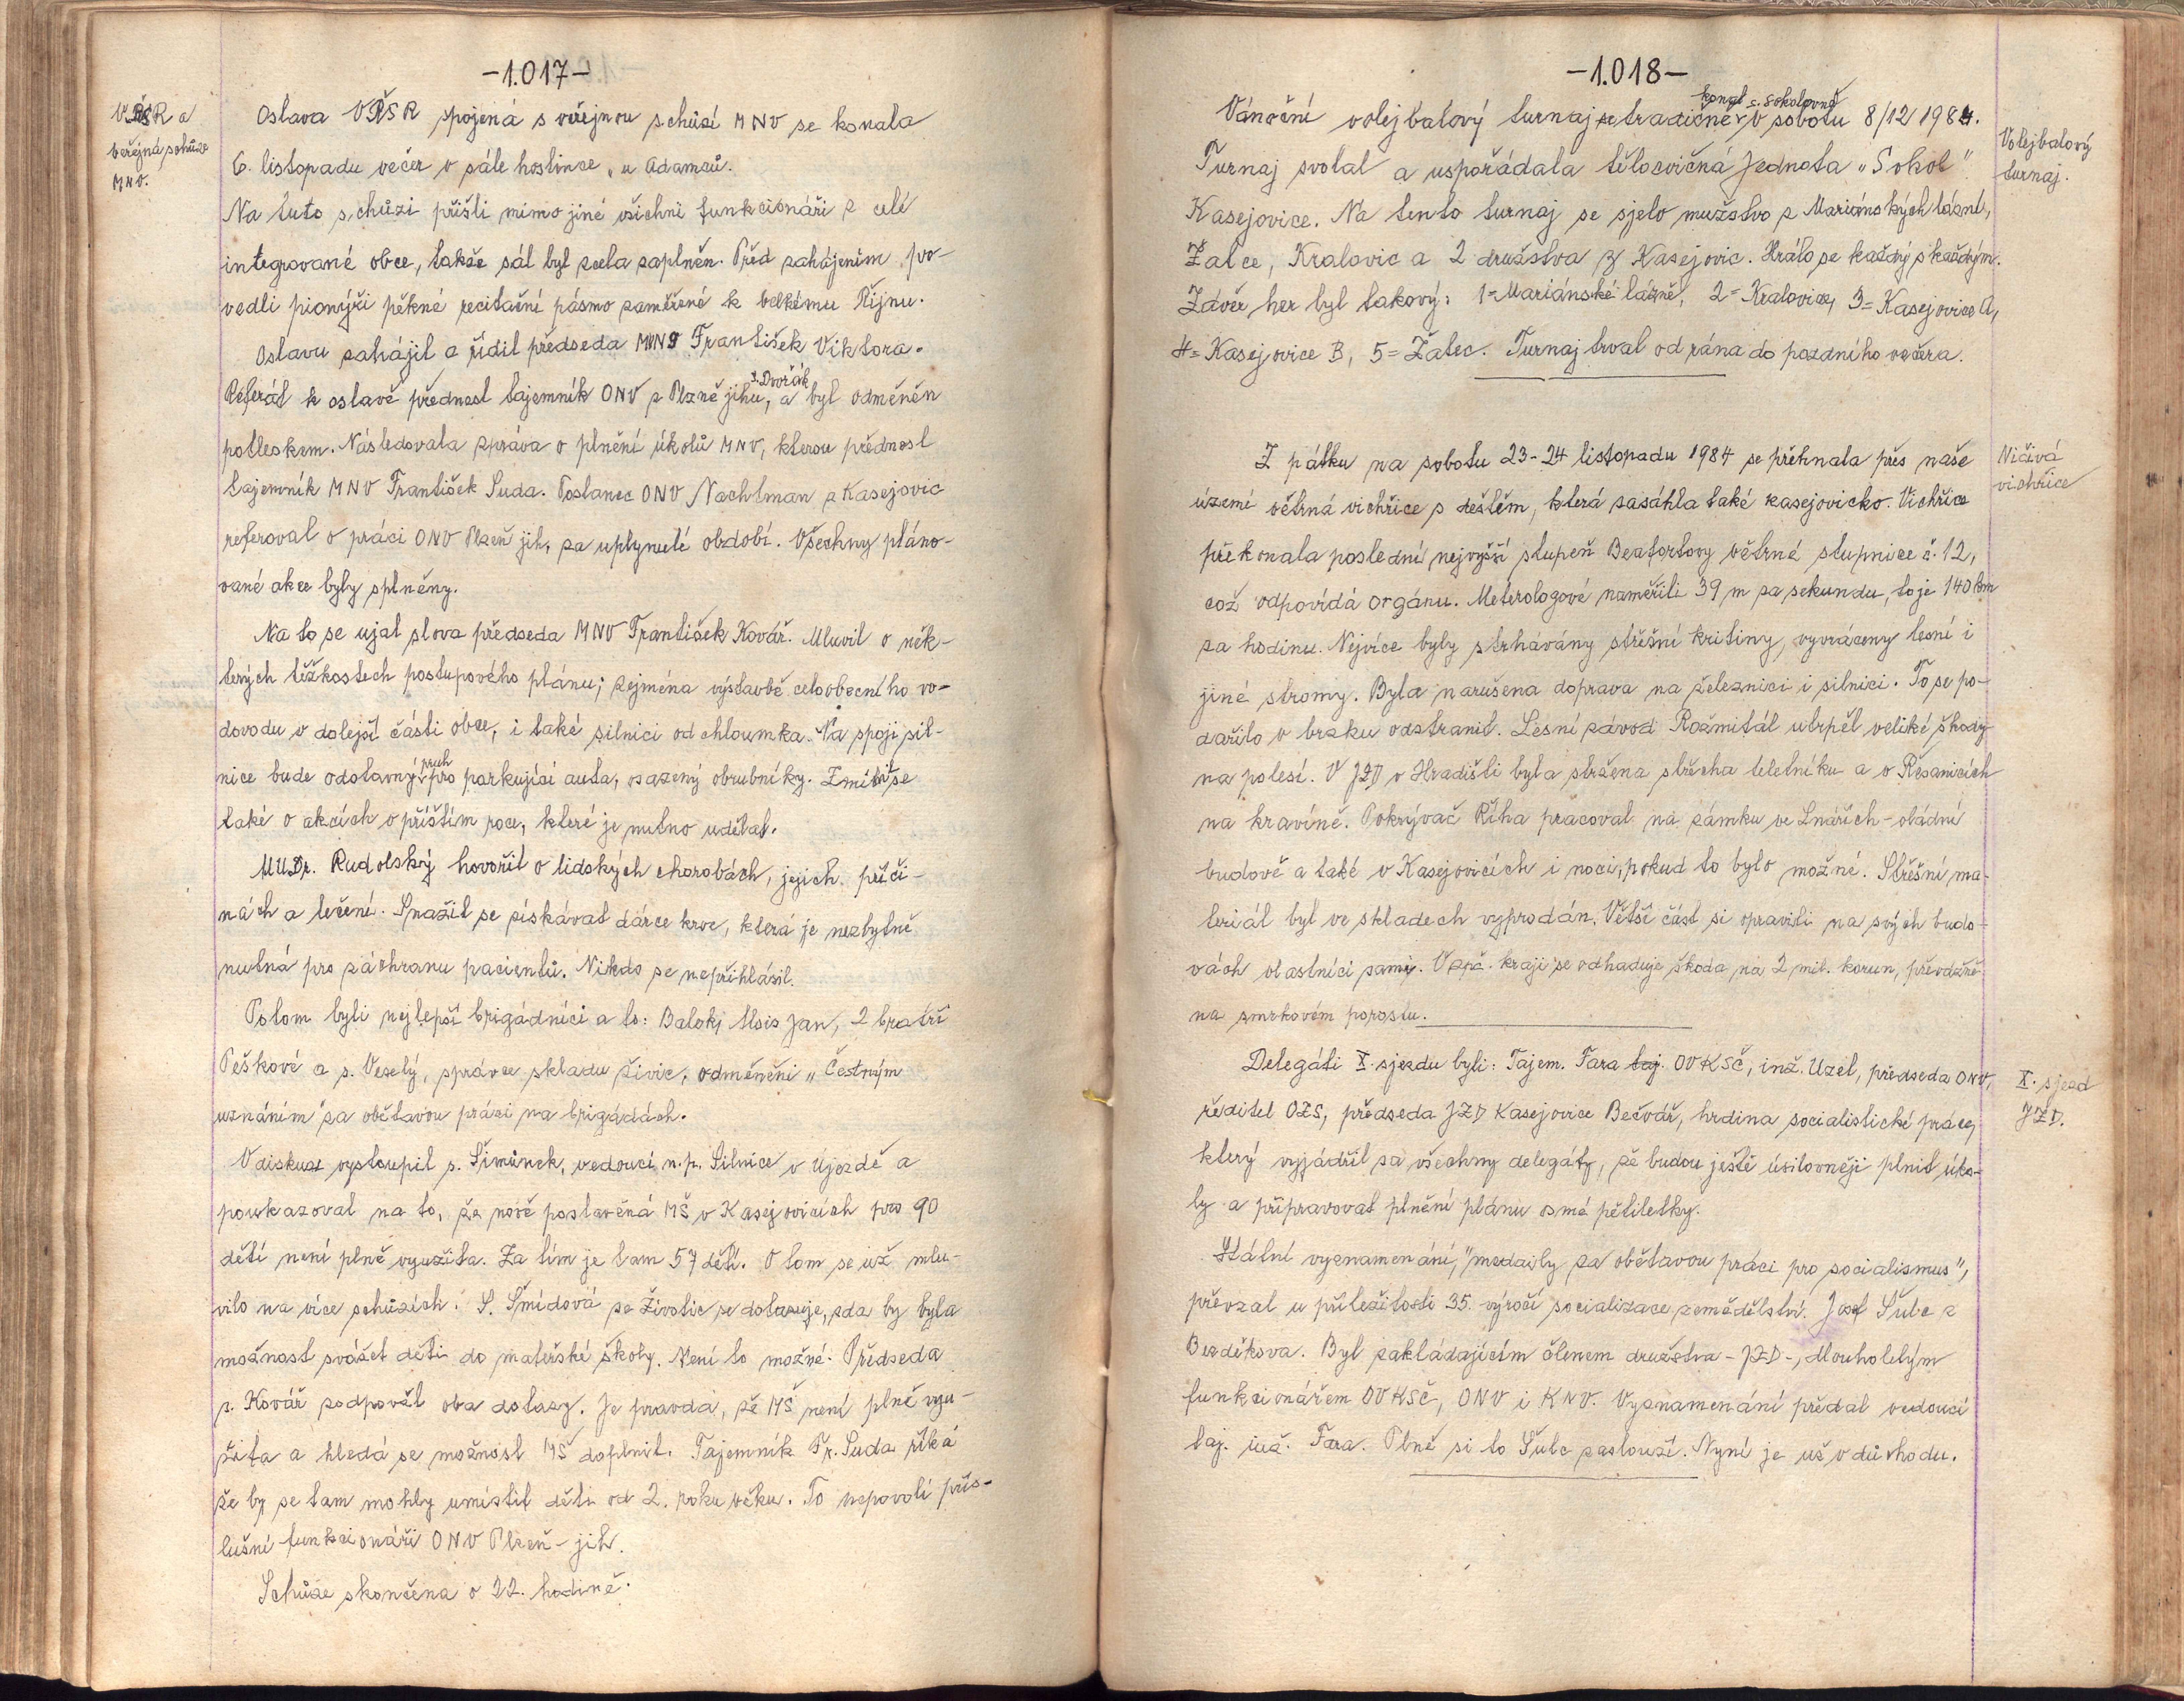 -1.017-
VŘSR a
veřejná schůze
MNV.
Oslava VŘSR spojená s veřejnou schůzí MNV se konala
6. listopadu večer v sále hostince „u Adamců.
Na tuto schůzi přišli mimo jiné všichni funkcionáři z celé
integrované obce, takže sál byl zcela zaplněn. Před zahájením pro-
vedli pionýři pěkné recitační pásmo zaměřené k velkému Říjnu.
Oslavu zahájil a řídil předseda František Viktora.
Referát k oslavě přednesl tajemník ONV z Plzně jihu, s. Dvořák a byl odměněn
potleskem. Následovala zpráva o plnění úkolů MNV, kterou přednesl
tajemník MNV František Suda. Poslanec ONV Nachtman z Kasejovic
referoval o práci ONV Plzeň jih, za uplynulé období. Všechny pláno-
vané akce byly splněny.
Na to se ujal slova předseda MNV František Kovář. Mluvil o něk-
terých těžkostech postupového plánu; zejména výstavbě celoobecního vo-
dovodu v dolejší části obce, i také silnici od chloumka. Na spoji sil-
nice bude odstavný pruh pro parkující auta, osazený obrubníky. Zmínil se
také o akcích v příštím roce, které je nutno udělat.
MUDr. Rudolský hovořil o lidských chorobách, jejich příči-
nách a léčení. Snažil se získávat dárce krve, která je nezbytně
nutná pro záchranu pacientů. Nikdo se nepřihlásil.
Potom byli nejlepší brigádníci a to: Balek, Alois Jan, 2 bratři
Peškové a s. Veselý, správce skladu živic, odměněni „Čestným
uznáním" za obětavou práci na brigádách.
V diskuzi vystoupil s. Šimůnek, vedoucí n.p. Silnice v Újezdě a
poukazoval na to, že nově postavěná MŠ v Kasejovicích pro 90
dětí není plně využita. Za tím je tam 57 dětí. O tom se už mlu-
vilo na více schůzích. S. Šmídová ze Životic se dotazuje, zda by byla
možnost svážet děti do mateřské školy. Není to možné. Předseda
s. Kovář zodpověl oba dotazy. Je pravda, že MŠ není plně vyu-
žita a hledá se možnost MŠ doplnit. Tajemník Fr. Suda říká
že by se tam mohly umístit děti od 2. roku věku. To nepovolí přís-
lušní funkcionáři ONV Plzeň-jih.
Schůze skončena o 22. hodině.
-1.018-
Vánoční volejbalový turnaj se tradičně konal v s. sokolovně v sobotu 8/12 1984.
Volejbalový
turnaj.
Turnaj svolal a uspořádala tělocvičná Jednota „Sokol"
Kasejovice. Na tento turnaj se sjelo mužstvo z Mariánských lázní,
Žatce, Kralovic a 2 družstva z Kasejovic. Hrálo se každý s každým.
Závěr her byl takový: 1=Mariánské lázně, 2=Kralovice, 3=Kasejovice A,
4=Kasejovice B, 5=Žatec. Turnaj trval od rána do pozdního večera.
Z pátku na sobotu 23-24 listopadu 1984 se přehnala přes naše
Ničivá
vichřice
území větrná vichřice s deštěm, která zasáhla také kasejovicko. Vichřice
překonala poslední nejvyšší stupeň Beafortovy větrné stupnice č. 12,
což odpovídá orgánu. Meterologové naměřili 39 m za sekundu, to je 140 km
za hodinu. Nejvíce byly strhávány střešní kritiny, vyvráceny lesní i
jiné stromy. Byla narušena doprava na železnici i silnici. To se po-
dařilo v brzku odstranit. Lesní závod Rožmitál utrpěl veliké škody
na polesí. V JZD v Hradišti byla stržena střecha teletníku a v Řesanicích
na kravíně. Pokrývač Říha pracoval na zámku ve Lnářích-vládní
budově a také v Kasejovicích i noci, pokud to bylo možné. Střešní ma-
teriál byl ve skladech vyprodán. Větší část si opravili na svých budo-
vách vlastníci sami. V zpč. kraji se odhaduje škoda na 2 mil. korun, převážně
na smrkovém porostu.
Delegáti X. sjezdu byli: Tajem. Fara taj. OV KSČ, inž. Uzel, předseda ONV,
X. sjezd
JZD.
ředitel OZS, předseda JZD Kasejovice Bečvář, hrdina socialistické práce,
který vyjádřil za všechny delegáty, že budou ještě úsilovněji plnit úko-
ly a připravovat plnění plánu osmé pětiletky.
Státní vyznamenání, "medaily za obětavou práci pro socialismus",
převzal u příležitosti 35. výročí socializace zemědělství. Josef Šulc z
Bezděkova. Byl zakládajícím členem družstva -JZD-, dlouholetým
funkcionářem OV KSČ, ONV i KNV. Vyznamenání předal vedoucí
taj. inž. Fara. Plně si to Šulc zaslouží. Nyní je už v důchodu.